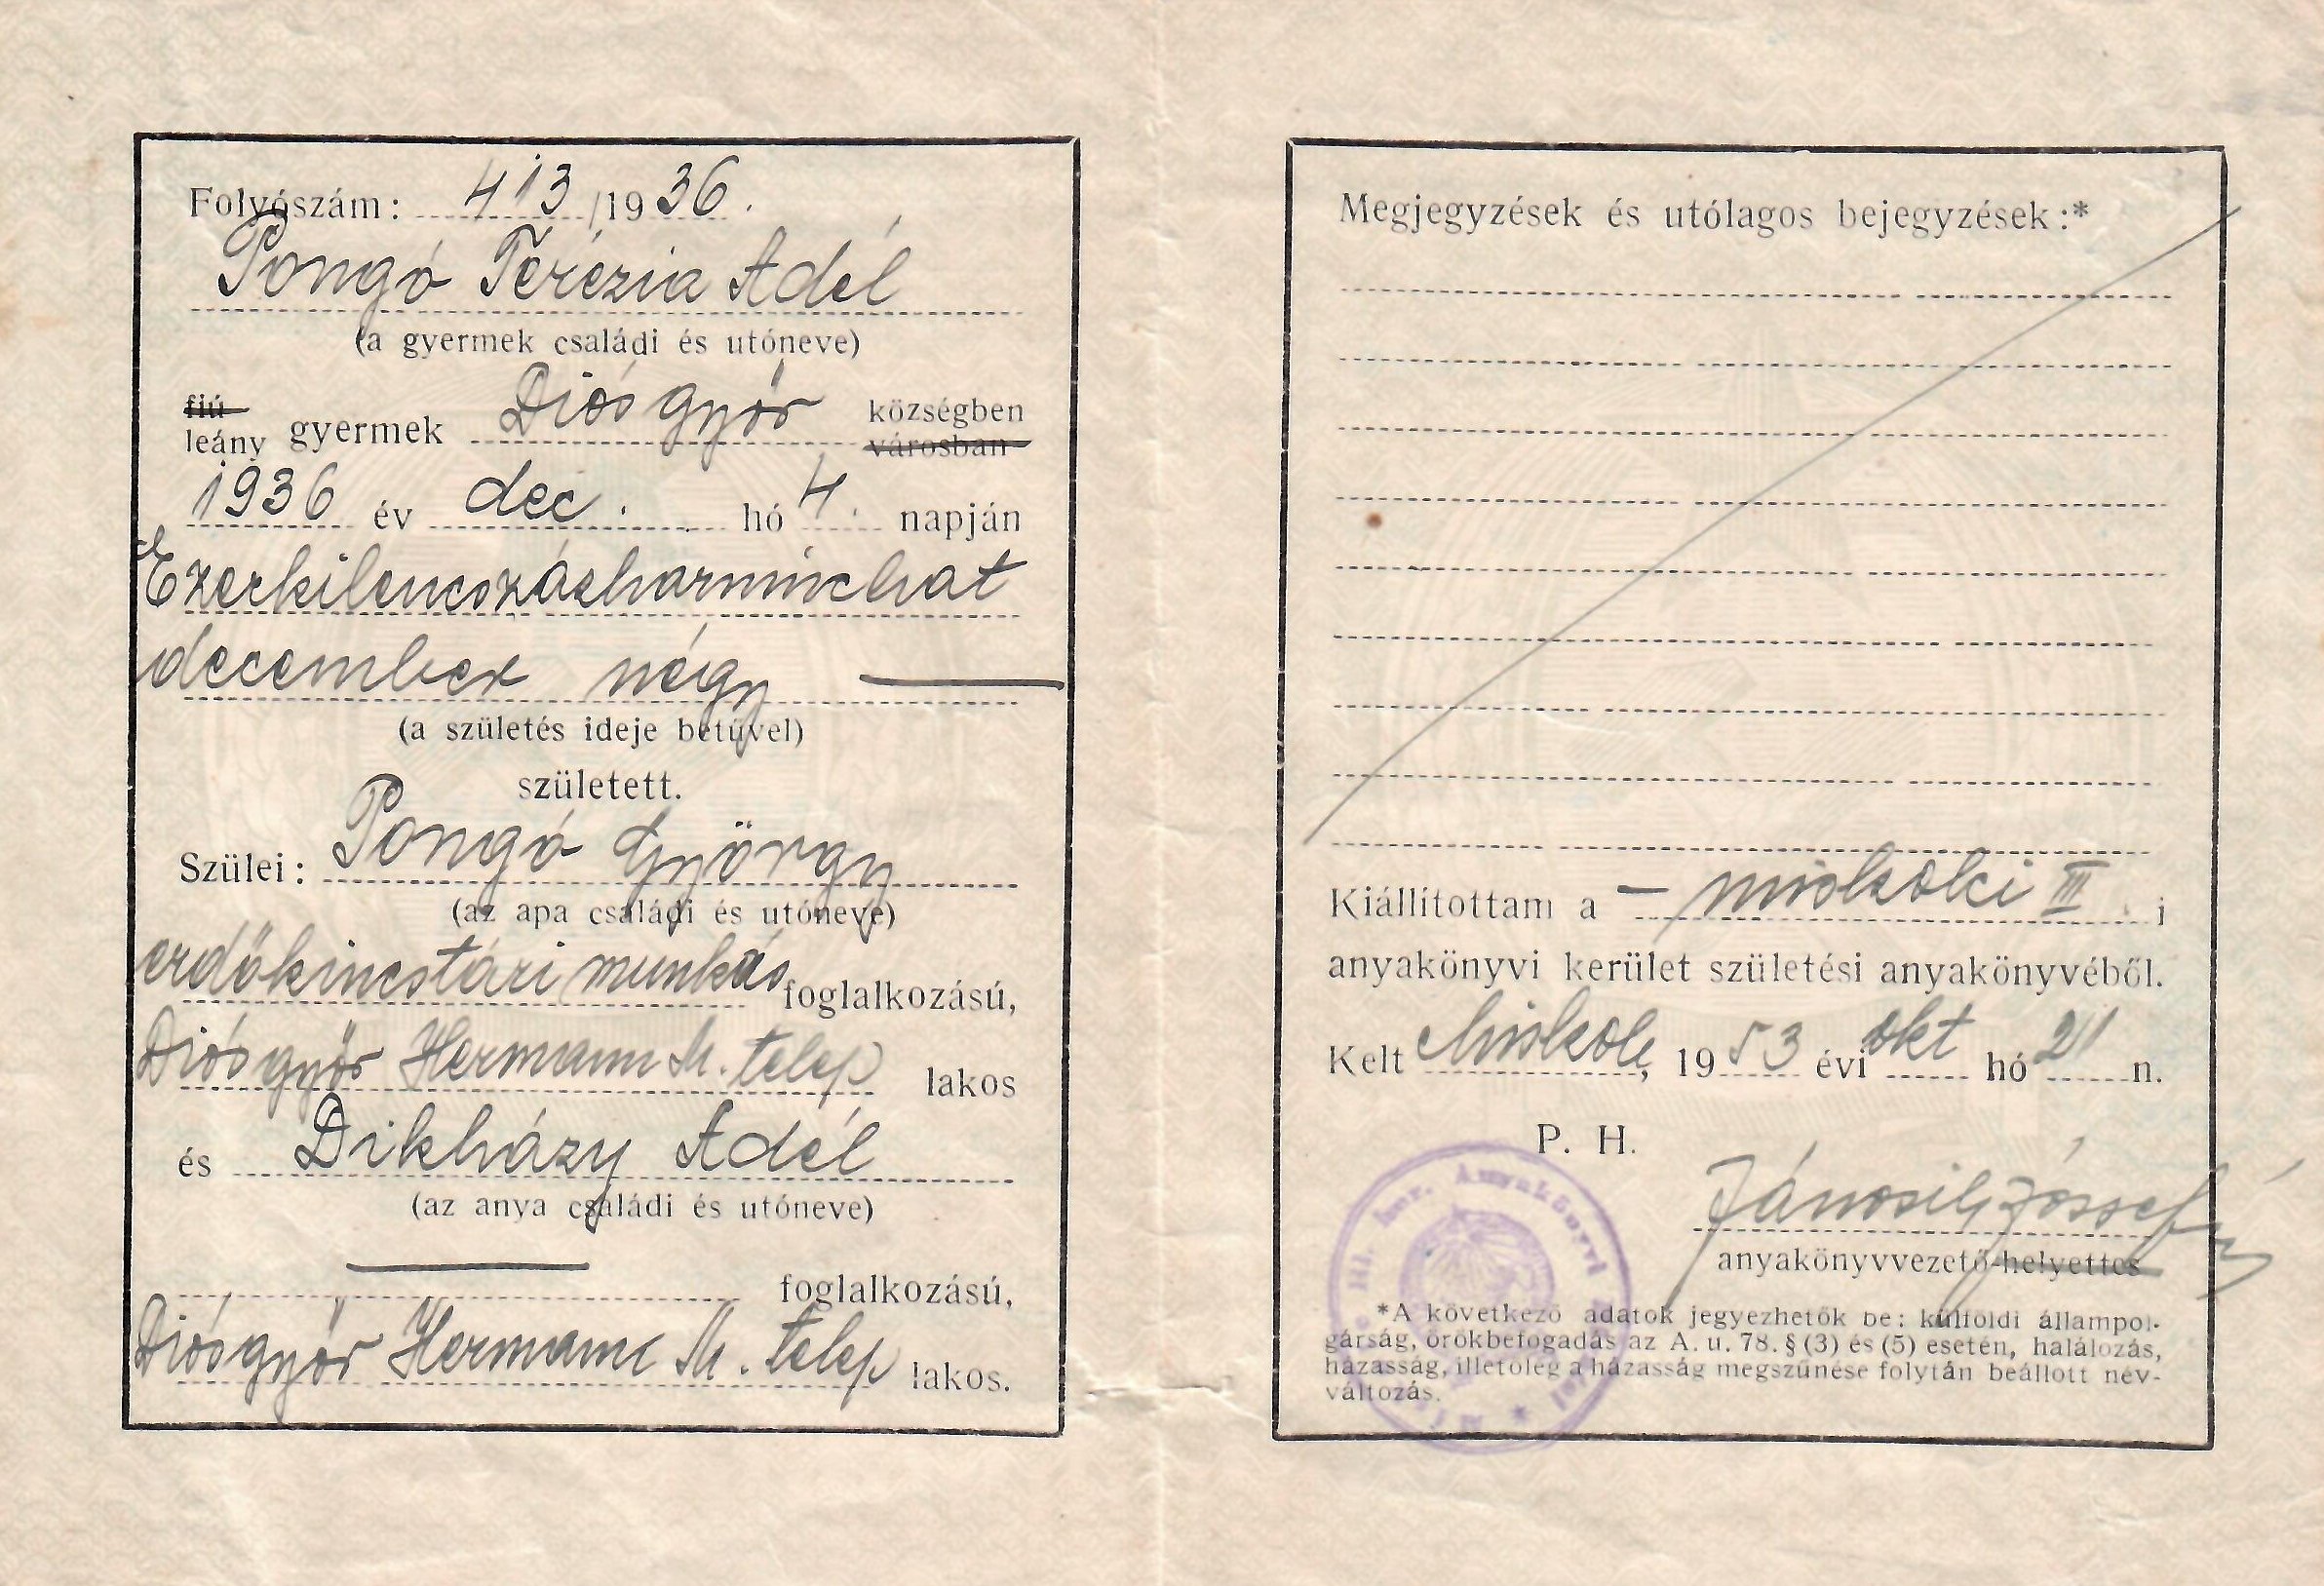 Folyószám: 413/1936.
Pongó Terézia Adél
(a gyermek családi és utóneve)
fiú
leány gyermek Diósgyőr községben
városban
1936 év dec. hó 4. napján
Ezerkilencszázharminchat
december négy
(a születés ideje betűvel)
született.
Szülei: Pongó György
(az apa családi és utóneve)
erdőkincstári munkás foglalkozású,
Diósgyőr Hermann M. telep lakos
és Dikházy Adél
(az anya családi és utóneve)
foglalkozású,
Diósgyőr Hermann M. telep lakos.
Megjegyzések és utólagos bejegyzések:*
Kiállítottam a – miskolci III. i
anyakönyvi kerület születési anyakönyvéből.
Kelt Miskolc, 1953 évi okt hó 21 n.
P. H.
József
anyakönyvvezető-helyettes
*A következő adatok jegyezhetők be: külföldi állampol-
gárság, örökbefogadás az A. u. 78. § (3) és (5) esetén, halálozás,
házasság, illetőleg a házasság megszűnése folytán beállott név-
változás.
III. ker. Anyakönyvi